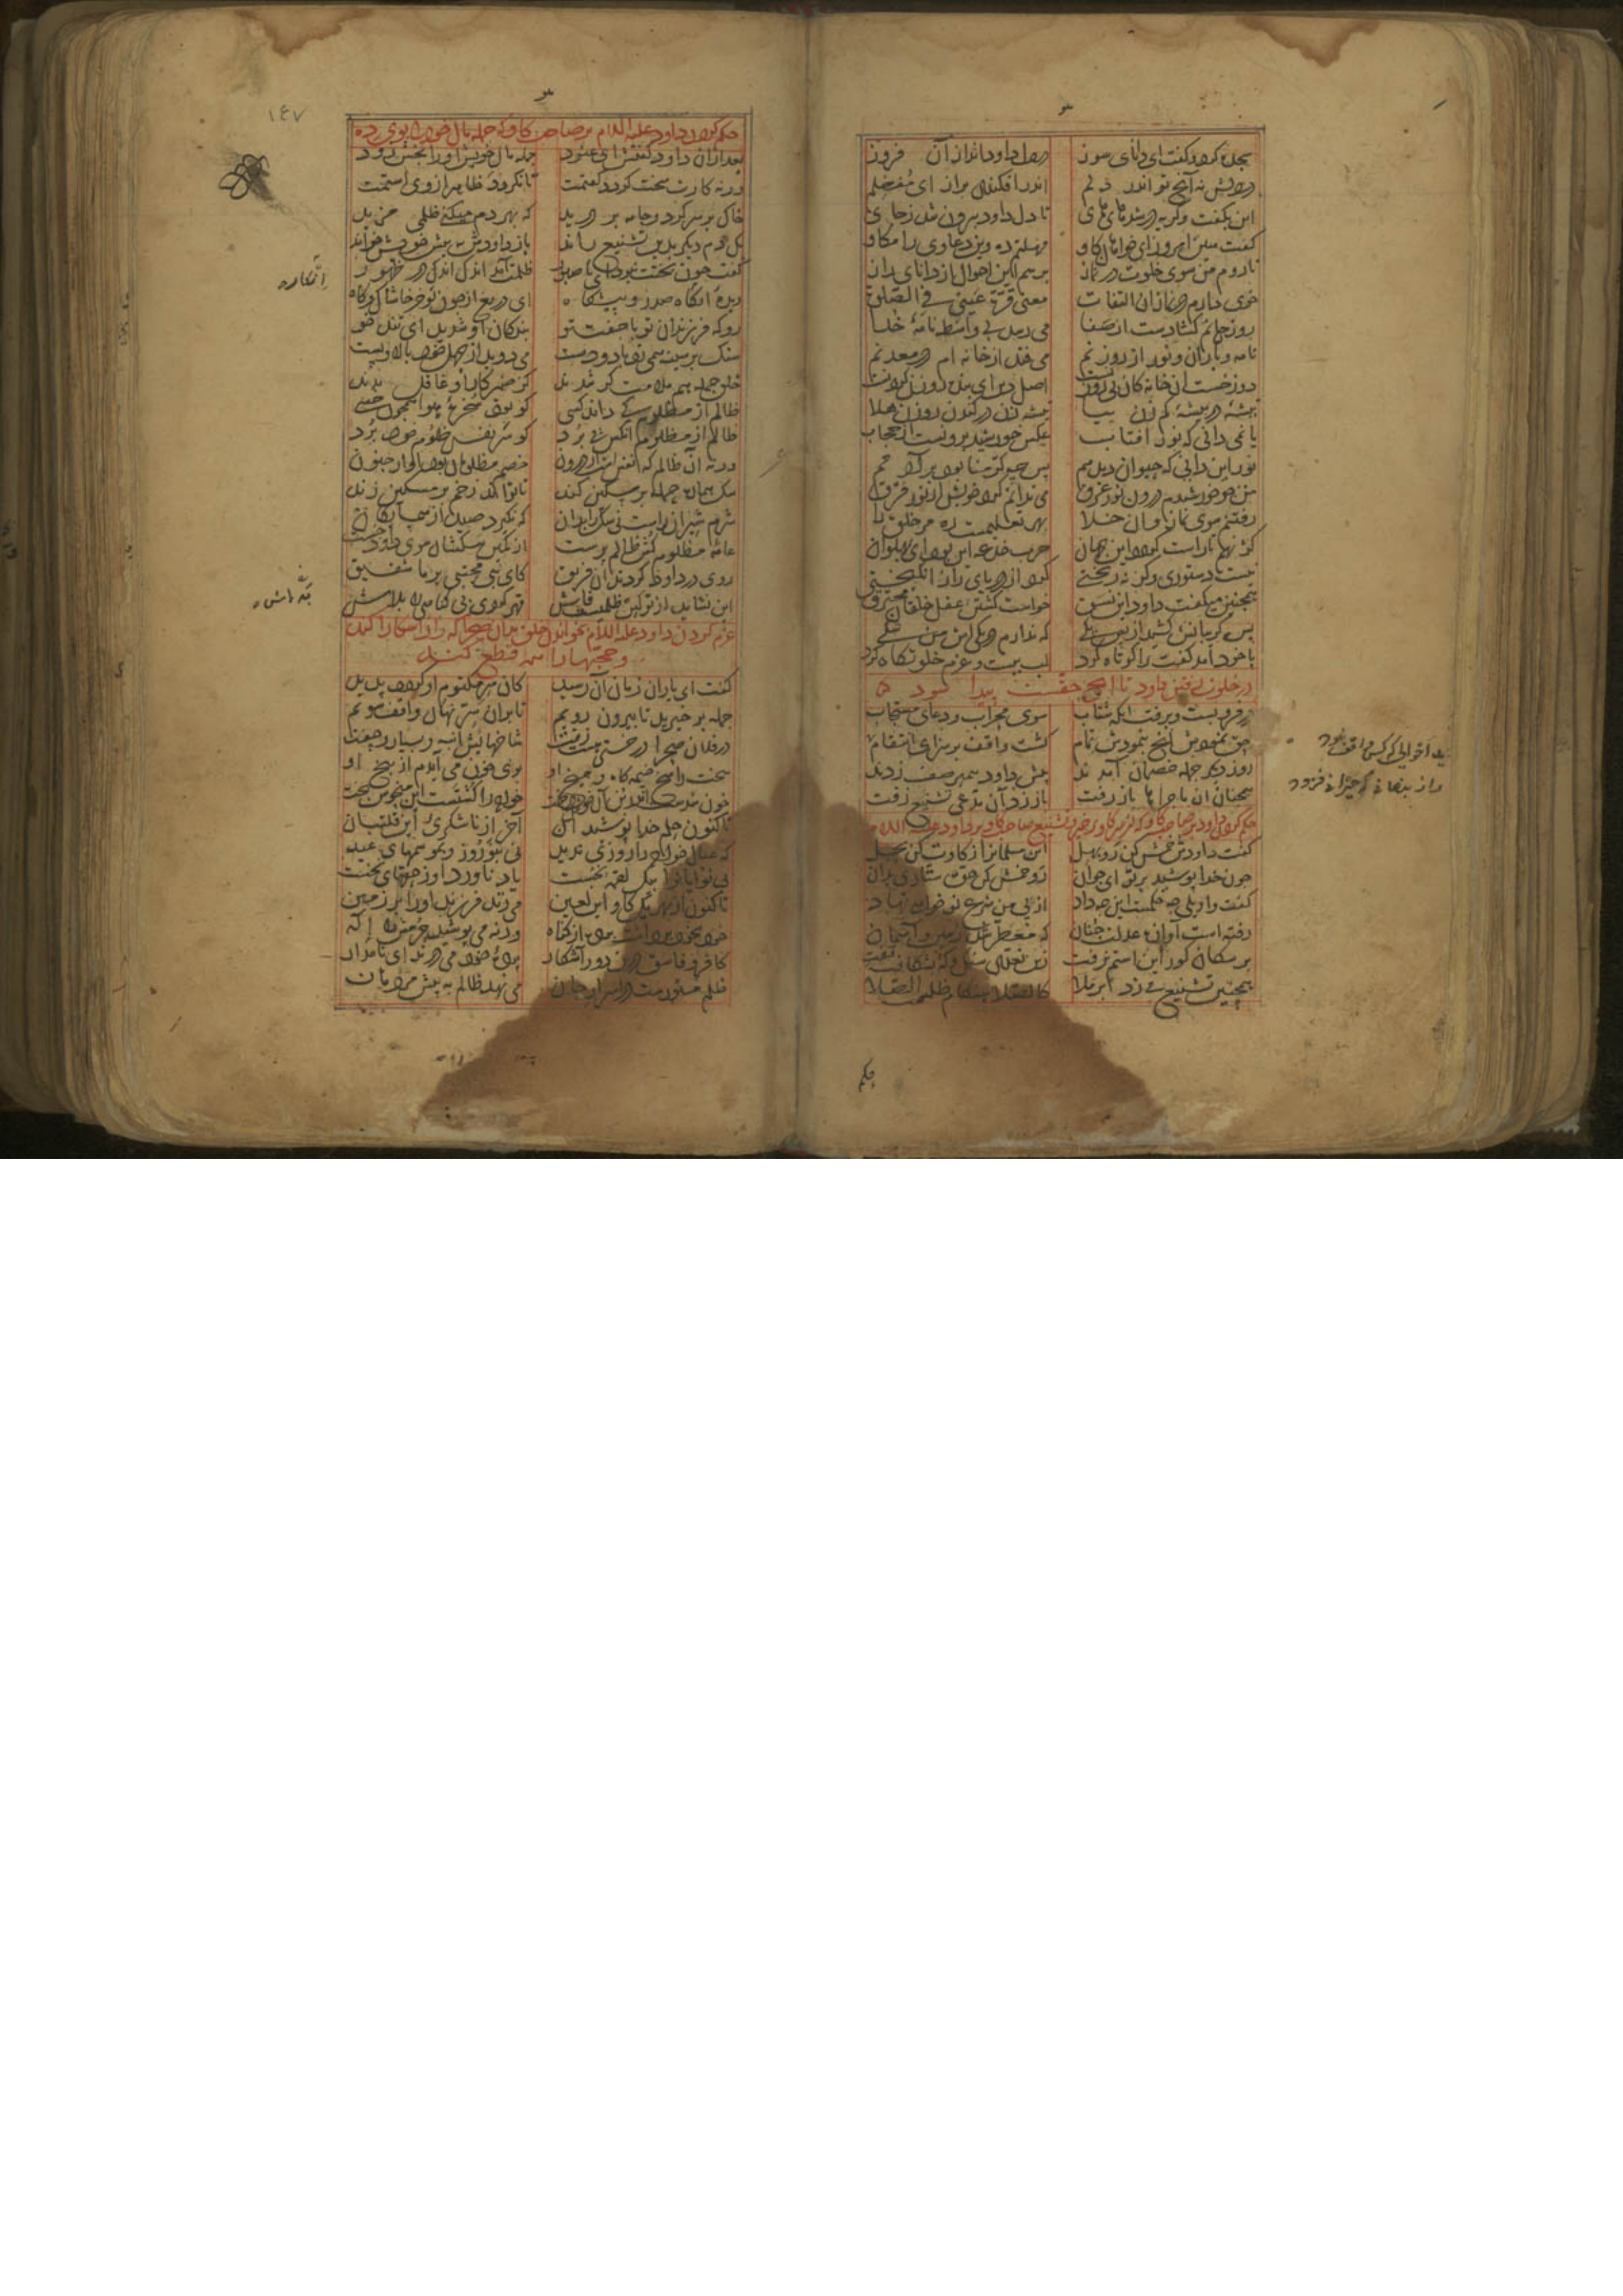 سجده کرد و گفت ای دانای سوز در دل داود انداز آن فروز
در دلش نه آنچ تو اندر دلم اندر افکندی براز ای مفضلم
این بگفت و گریه در شد های های تا دل داود بیرون شد ز جای
گفت هین امروز ای خواهان گاو مهلتم ده وین دعاوی را مکاو
تا روم من سوی خلوت در نماز پرسم این احوال از دانای راز
خوی دارم در نماز آن التفات معنی قرة عینی فی الصلوة
روزن جانم گشادست از صفا می رسد بی واسطه نامه خدا
نامه و باران و نور از روزنم می فتد از خانه ام از معدنم
دوزخست آن خانه کان بی روزنست اصل دین ای بنده روزن کردنست
تیشه در بیشه کم زن بیا تیشه زن در کندن روزن هلا
یا نمی دانی که نور آفتاب عکس خورشید برونست از حجاب
نور این دانی که حیوان دید هم پس چه کرمنا بود بر آدمم
من چو خورشیدم درون نور غرق می ندانم کرد خویش از نور فرق
رفتنم سوی نماز و آن خلا بهر تعلیمست ره مر خلق را
کژ نهم تا راست کردد این جهان حرب خدعه این بود ای پهلوان
نیست دستوری و گر نه ریختی گرد از دریای راز انگیختی
همچنین میگفت داود این نسق خواست گشتن عقل خلقان محترق
پس گریبانش کشید از پس یکی که ندارم در یکی اش من شکی
با خود آمد گفت را کوتاه کرد لب ببست و عزم خلوتگاه کرد
در خلوت رفتن داود تا آنچ حقست پیدا شود
در فرو بست و برفت آنگه شتاب سوی محراب و دعای مستجاب
حق نمودش آنچ بنمودش تمام گشت واقف بر سزای انتقام
روز دیگر جمله خصمان آمدند پیش داود پیمبر صف زدند
همچنان آن ماجراها باز رفت باز زد آن مدعی تشنیع زفت
حکم کردن داود بر صاحب گاو که از سر گاو برخیز و تشنیع صاحب گاو بر داود علیه السلام
گفت داودش خمش کن رو بهل این مسلمان را ز گاوت کن بحل
چون خدا پوشید بر تو ای جوان رو خمش کن حق ستاری بدان
گفت واویلی چه حکمست این چه داد از پی من شرع نو خواهی نهاد
رفته است آوازه عدلت چنان که معطر شد زمین و آسمان
بر سگان کور این استم نرفت زین تعدی سنگ و که بشکافت تفت
همچنین تشنیع می زد برملا کالصلا هنگام ظلمست الصلا
حکم
۱۴۷
حکم کردن داود علیه السلام بر صاحب گاو که جمله مال خود را بوی ده
بعد از آن داود گفتش ای عنود جمله مال خویش او را بخش زود
ورنه کارت سخت گردد گفتمت تا نگردد ظاهر از وی استمت
خاک بر سر کرد و جامه بر درید که بهر دم میکنی ظلمی مزید
یک دم دیگر بدین تشنیع راند باز داودش به پیش خویش خواند
گفت چون بختت نبود ای ناصبور ظلمت آمد اندک اندک در ظهور
ریده آنگاه صدر و پیشگاه ای دریغ از چون تو خر خاشاک و کاه
رو که فرزندان تو با جفت تو بندگان او شدند ای تند خو
سنگ بر سینه همی زد با دو دست می دوید از جهل خود بالا و پست
خلق جمله هم ملامت گر شدند کز ضمیر کار او غافل بدند
ظالم از مظلوم کی داند کسی کو بود سخره هوا همچون خسی
ظالم از مظلوم آنکس پی برد کو سر نفس ظلوم خود برد
ورنه آن ظالم که نفس است از درون خصم مظلومان بود از جنون
سگ هماره حمله بر مسکین کند تا تواند زخم بر مسکین زند
شرم شیران راست نی سگ را بدان که نگیرد صید از همسایگان
عامه مظلوم کش ظالم پرست از کمین سگشان سوی داود جست
روی در داود کردند آن فریق کای نبی مجتبی بر ما شفیق
این نشاید از تو کین ظلمیست فاش قهر کردی بی گناهی را بلاش
عزم کردن داود علیه السلام بخواندن خلق بدان صحرا که راز آشکارا کند
و حجتها را همه قطع کند
گفت ای یاران زمان آن رسید کان سر مکتوم او گردد پدید
جمله برخیزید تا بیرون رویم تا بر آن سر نهان واقف شویم
در فلان صحرا درختی هست زفت شاخهایش انبه و بسیار و چفت
سخت راسخ خیمه گاه و میخ او بوی خون می آیدم از بیخ او
خون شدست اندر بن آن خوش درخت خواجه را کشتست این منحوس بخت
تا کنون حلم خدا پوشید آن آخر از ناشکری این قلتبان
که عیال خواجه را روزی ندید نی بنوروز و نه موسمهای عید
بی نوایان را بیک لقمه نجست یاد ناورد او ز حقهای نخست
تا کنون از بهر یک گاو این لعین می زند فرزند او را بر زمین
او بخود برداشت پرده از گناه ورنه می پوشید جرمش را اله
کافر و فاسق درین دور آشکار پرده خود می درند ای نامدار
ظلم مستورست در اسرار جان می نهد ظالم به پیش مردمان